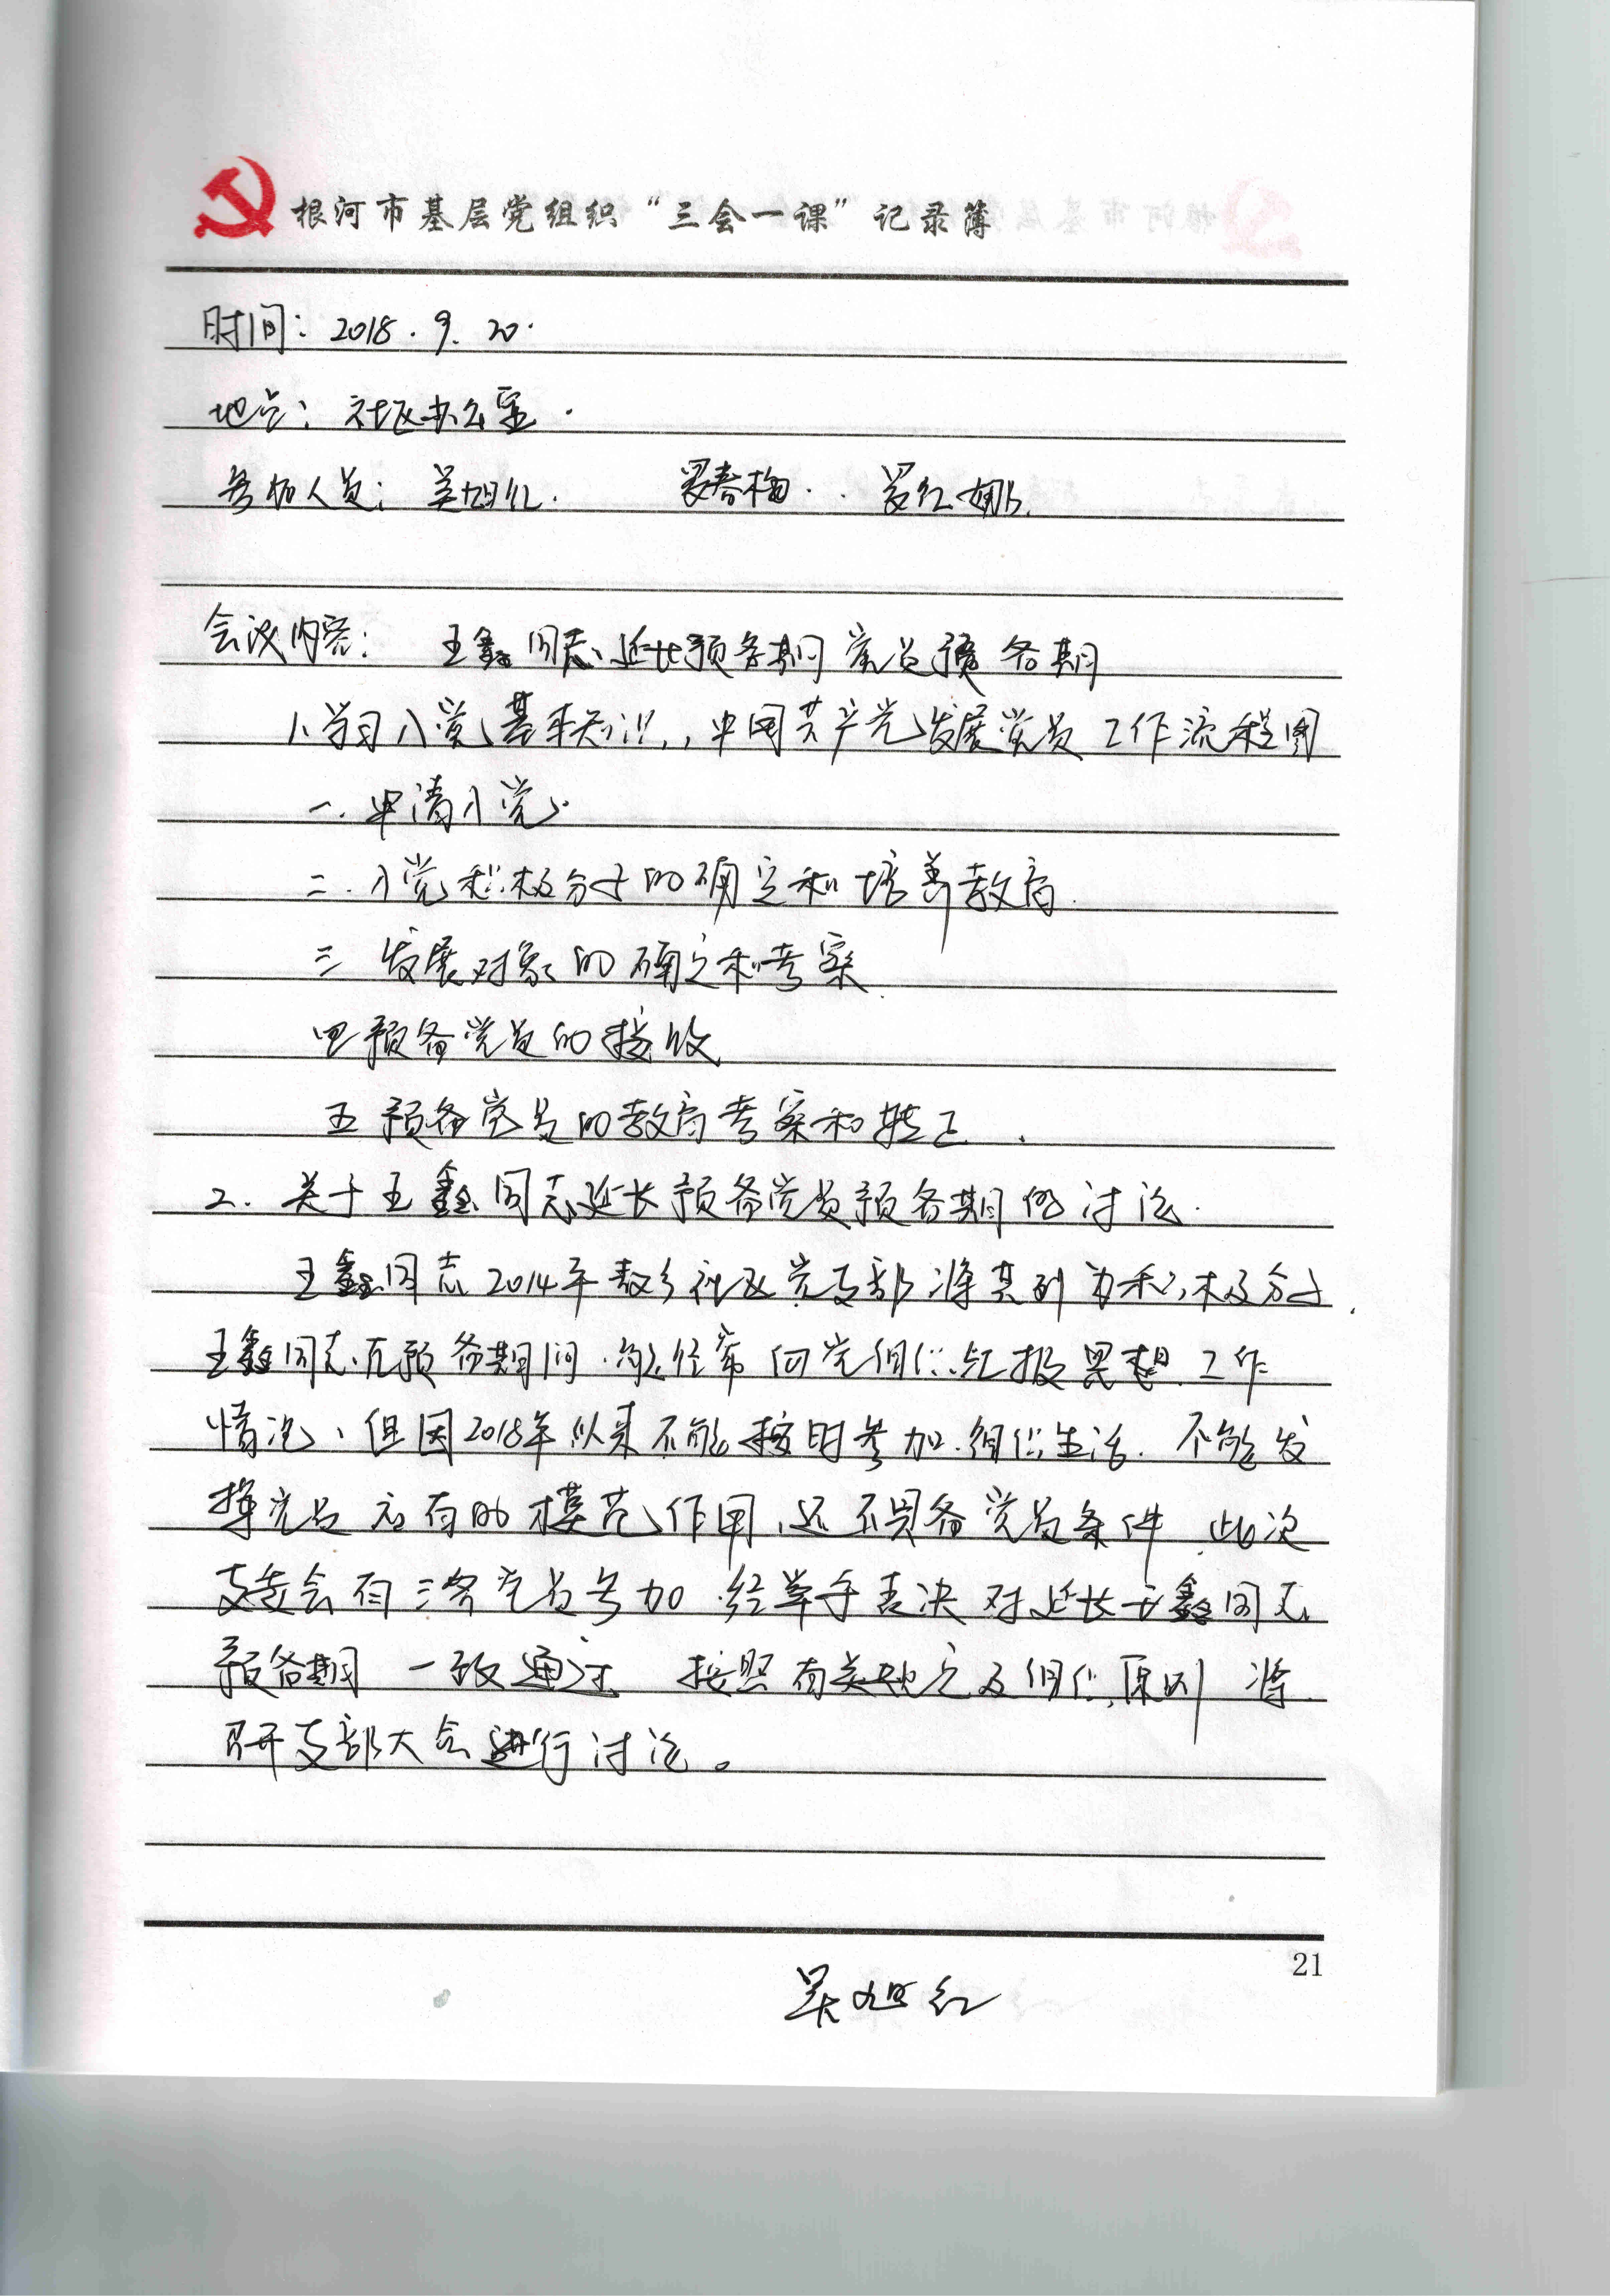 根河市基层党组织“三会一课”记录薄
时间：2018.9.20.
地点：社区办公室.
参加人员：吴旭红. 翟春梅.. 罗红娜.
会议内容： 王鑫同志延长预备期 党员预备期
1、学习入党基本知识，，中国共产党发展党员工作流程图
一.申请入党.
二.入党积极分子的确定和培养教育.
三 发展对象的确定和考察.
四预备党员的接收
五 预备党员的教育考察和转正.
2. 关于王鑫同志延长预备党员预备期的讨论.
王鑫同志2014年敖乡社区党支部将其列为积极分子.
王鑫同志在预备期间.能经常向党组织汇报思想.工作
情况、但因2018年以来不能按时参加.组织生活.不能发
挥党员应有的模范作用，还不具备党员条件.此次
支委会有三名党员参加.经举手表决对延长王鑫同志
预备期 一致通过 按照有关规定及组织原则 将
召开支部大会进行讨论。
21
吴旭红